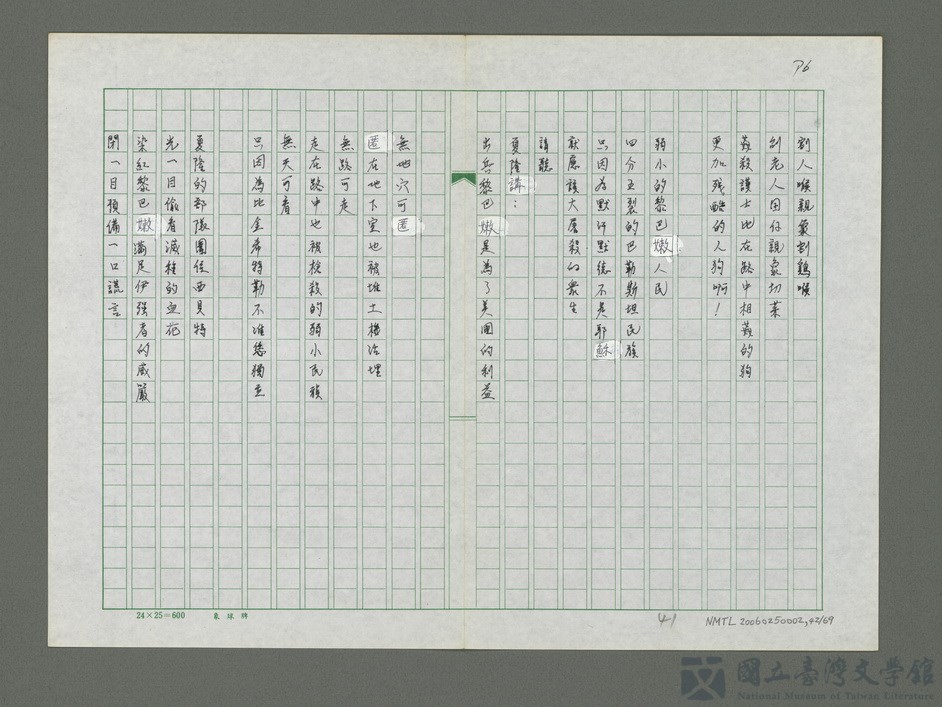 P6
割人喉親象割鷄喉
刣老人囝仔親象切菜
姦殺護士比在路中相姦的狗
更加残酷的人狗啊!
弱小的黎巴嫩人民
四分五裂的巴勒斯坦民族
只因為默許默德不是耶穌
就應該大屠殺的衆生
請聽
夏隆講:
出兵黎巴嫩是為了美國的利益
無地穴可匿
匿在地下室也被堆土機活埋
無路可走
走在路中也被槍殺的弱小民族
無天可看
只因為比金希特勒不准恁獨立
夏隆的部隊圍住西貝特
光一目偷看滅種的血花
染紅黎巴嫩滿足伊强者的威嚴
閉一目預備一口謊言
24×25=600
象球牌
41
NMTL 20060250002,42/69
國立臺灣文學館
National Museum of Taiwan Literature